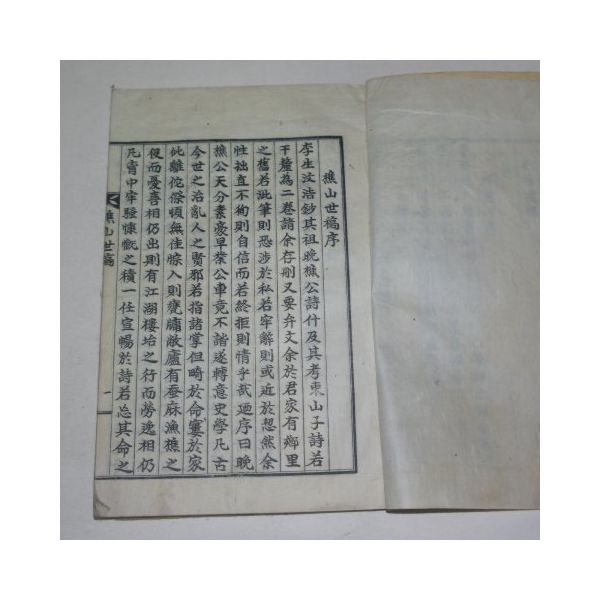 樵山世稿序
李生汶浩鈔其祖晩樵公詩什及其考東山子詩若
干釐為二卷請余存刪又要弁文余於君家有鄉里
之舊若泚筆則恐涉於私若牢辭則或近於恝然余
性拙直不徇則自信而若終拒則情乎哉廼序曰晩
樵公天分素豪早業公車竟不諧遂轉意史學凡古
今世之治亂人之賢邪若指諸掌但畸於命窶於家
仳離佗傺頓無佳悰入則甕牖敝廬有蚕麻漁樵之
役而憂喜相仍出則有江湖樓坮之行而勞逸相仍
凡胷中牢騷慷慨之積一任宣暢於詩若忘其命之
樵山世稿
一